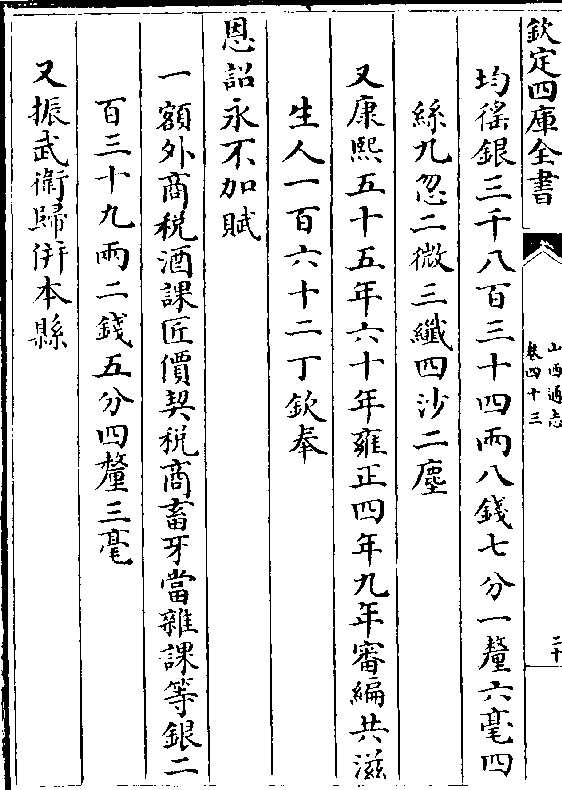 欽定四庫全書
山西通志
卷四十三
二十
均徭銀三千八百三十四兩八錢七分一釐六毫四
絲九忽二微三纖四沙二塵
又康熙五十五年六十年雍正四年九年審編共滋
生人一百六十二丁欽奉
恩詔永不加賦
一額外商稅酒課匠價契稅商畜牙當雜課等銀二
百三十九兩二錢五分四釐三毫
又振武衛歸併本縣